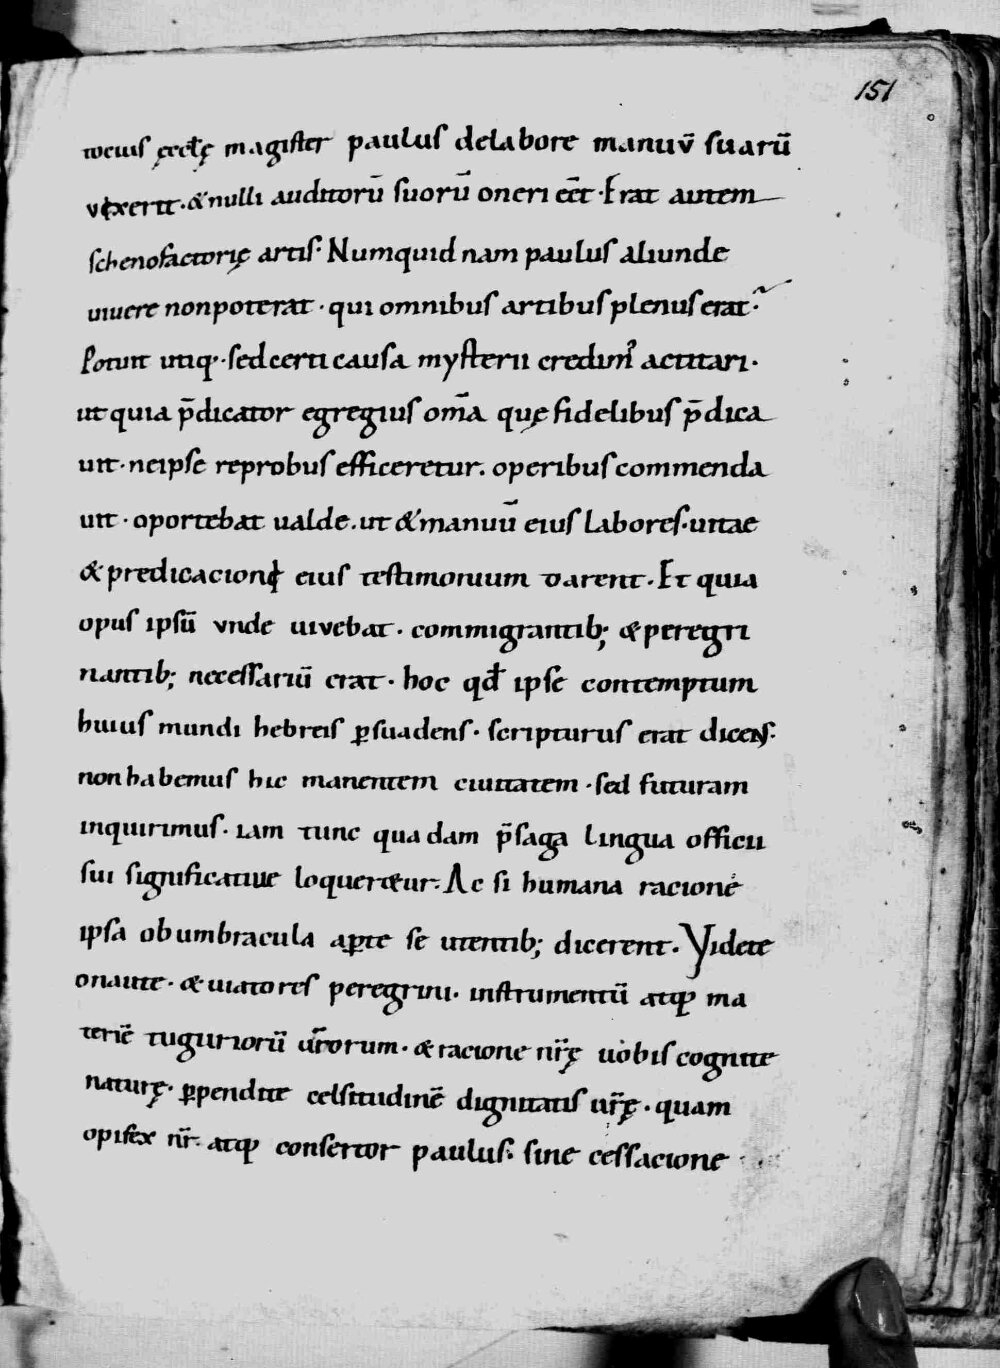 151
tocius ęcclę magister paulus delabore manuū suarū
vixerit. & nulli auditorū suorū oneri eēt. Erat autem
schenofactorię artis. Numquid nam paulus aliunde
uiuere nonpoterat. qui omnibus artibus plenus erat.
Potuit utiq. sed certi causa mysterii credimꝰ actitari.
ut quia p̄dicator egregius om̄a quę fidelibus p̄dica
uit. neipse reprobus efficeretur. operibus commenda
uit. oportebat ualde. ut & manuū eius labores. uitae
& predicacioni eius testimonium darent. Et quia
opus ipsū vnde uivebat. commigrantib; & peregri
nantib; necessariū erat. hoc qđ ipse contemptum
huius mundi hebreis ꝑsuadens. scripturus erat dicens.
non habemus hic manentem ciuitatem. sed futuram
inquirimus. iam tunc quadam p̄saga lingua officii
sui significatiue loqueretur. Ac si humana racione
ipsa obumbracula aꝑte se utentib; dicerent. Videte
o naute. & uiatores peregrini. instrumentū atq ma
teriē tuguriorū ur̄orum. & racione nr̄ę uobis cognite
naturę. ꝑpendite celsitudinē dignitatis ur̄ę. quam
opifex nr̄. atq consertor paulus. sine cessacione